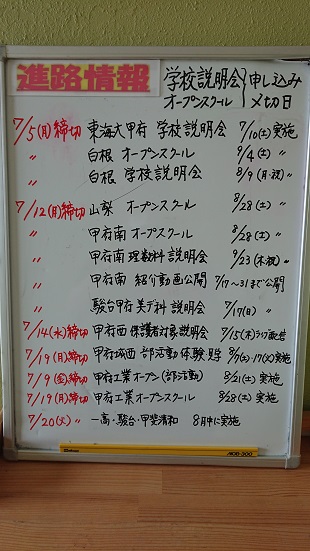 進路情報 学校説明会 オープンスクール 申し込み 〆切日
7/5(月)締切 東海大甲府 学校説明会 7/10(土)実施
〃 白根 オープンスクール 9/4(土) 〃
〃 白根 学校説明会 8/9(月・祝)〃
7/12(月)締切 山梨 オープンスクール 8/28(土) 〃
〃 甲府南 オープンスクール 8/28(土) 〃
〃 甲府南 理数科 説明会 9/23(木祝)〃
〃 甲府南 紹介動画公開 7/17〜31まで公開
〃 駿台甲府 美デ科 説明会 7/17(日) 〃
7/14(水)締切 甲府西 保護者対象説明会 7/15(木)ライブ配信
7/19(月)締切 甲府城西 部活動体験・見学 8/7(土)・17(火)実施
7/9(金)締切 甲府工業オープン(部活動) 8/21(土)実施
7/19(月)締切 甲府工業オープンスクール 8/28(土) 実施
7/20(火) 〃 一高・駿台・甲斐清和 8月中に実施